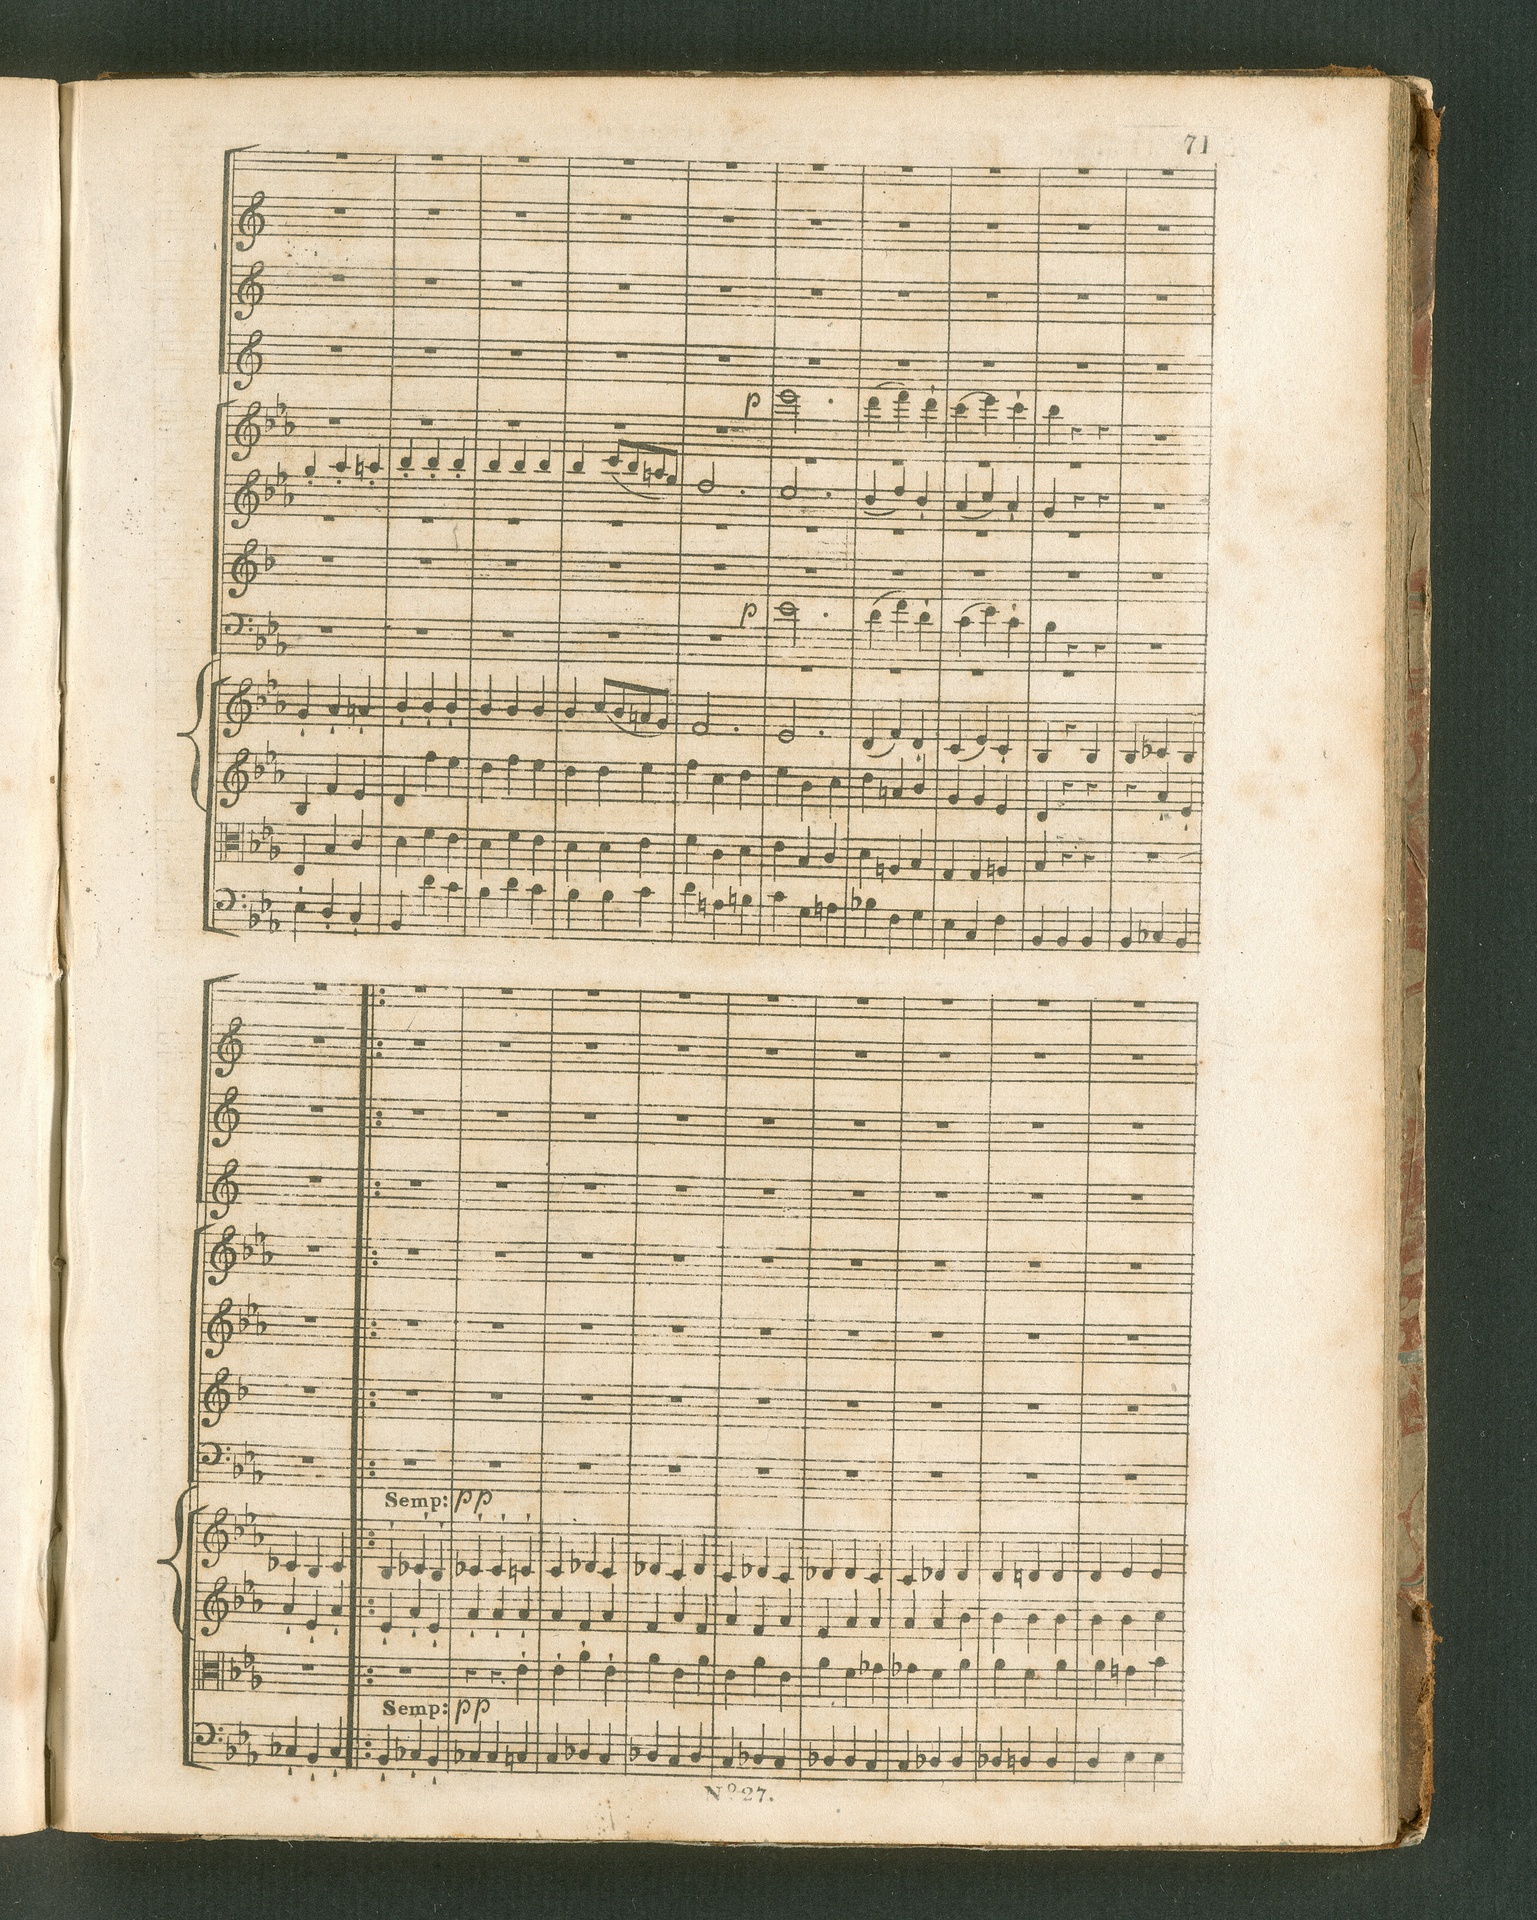 71
p
p
Semp: pp
Semp: pp
Nº 27.